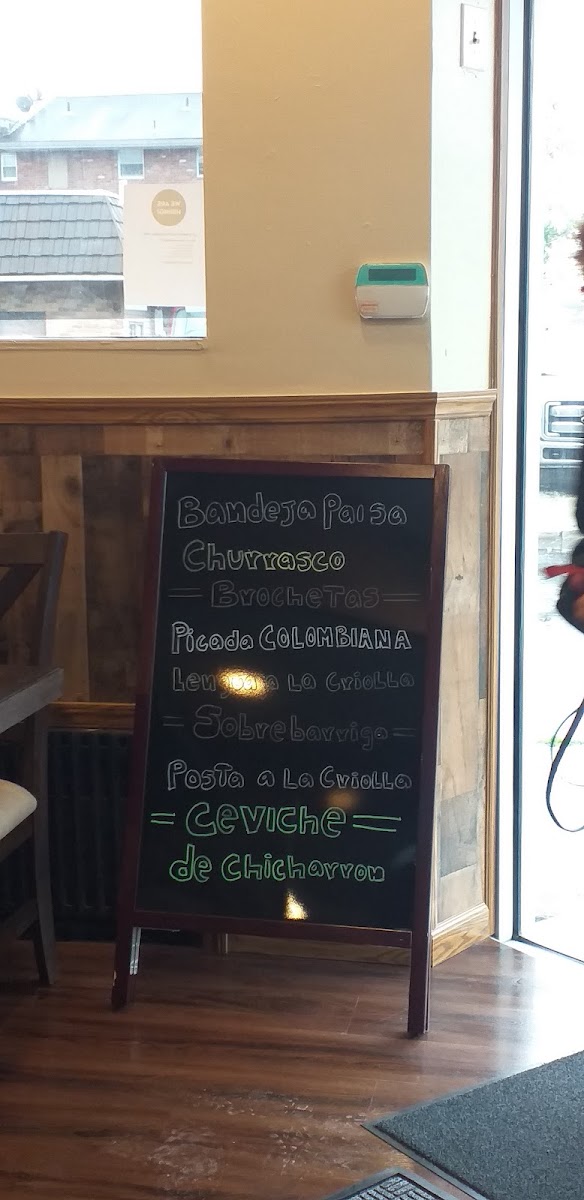 Bandeja Paisa
Churrasco
= Brochetas =
Picada COLOMBIANA
Lengua a La Criolla
= Sobrebarriga =
Posta a La Criolla
= Ceviche =
de Chicharron